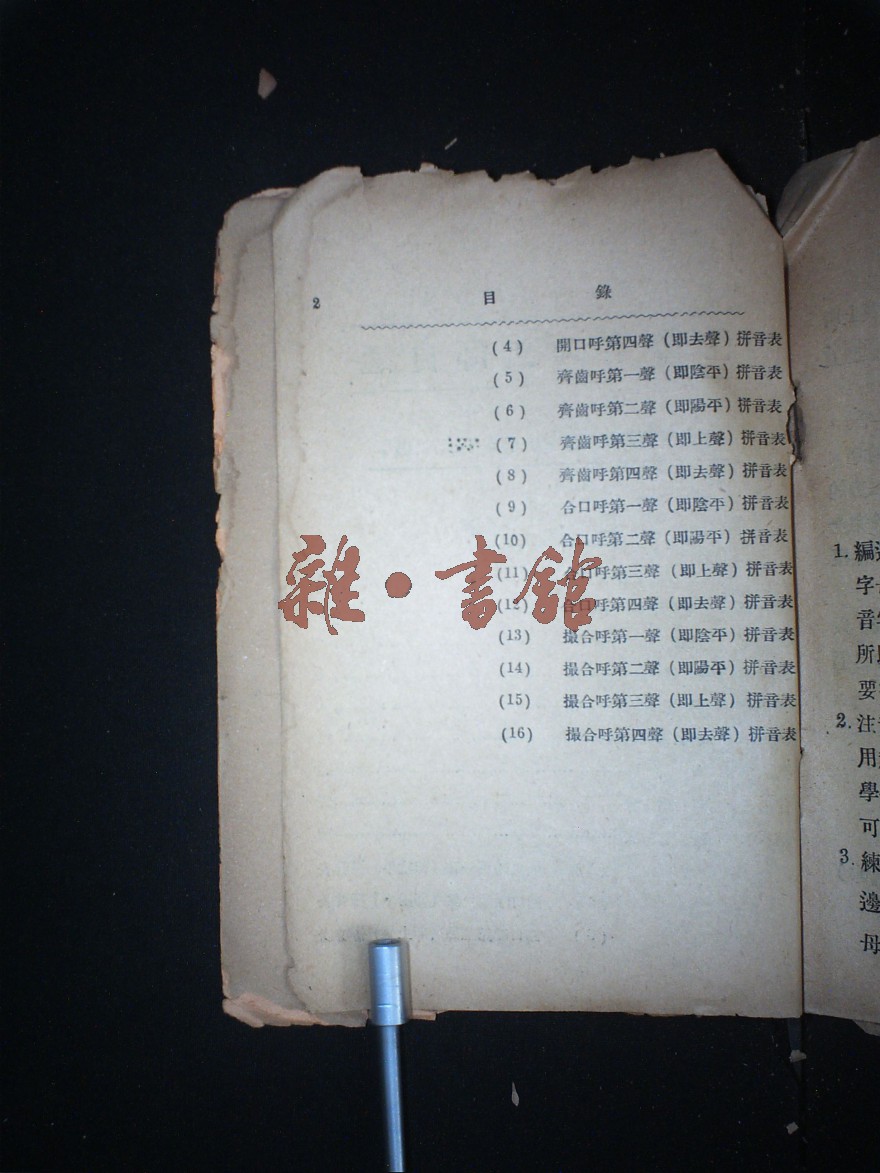 2 目 錄
(4) 開口呼第四聲（即去聲）拼音表
(5) 齊齒呼第一聲（即陰平）拼音表
(6) 齊齒呼第二聲（即陽平）拼音表
(7) 齊齒呼第三聲（即上聲）拼音表
(8) 齊齒呼第四聲（即去聲）拼音表
(9) 合口呼第一聲（即陰平）拼音表
(10) 合口呼第二聲（即陽平）拼音表
(11) 合口呼第三聲（即上聲）拼音表
(12) 合口呼第四聲（即去聲）拼音表
(13) 撮合呼第一聲（即陰平）拼音表
(14) 撮合呼第二聲（即陽平）拼音表
(15) 撮合呼第三聲（即上聲）拼音表
(16) 撮合呼第四聲（即去聲）拼音表
雜·書館
1. 編
字
音
所
要
2. 注
用
學
可
3. 練
邊
母